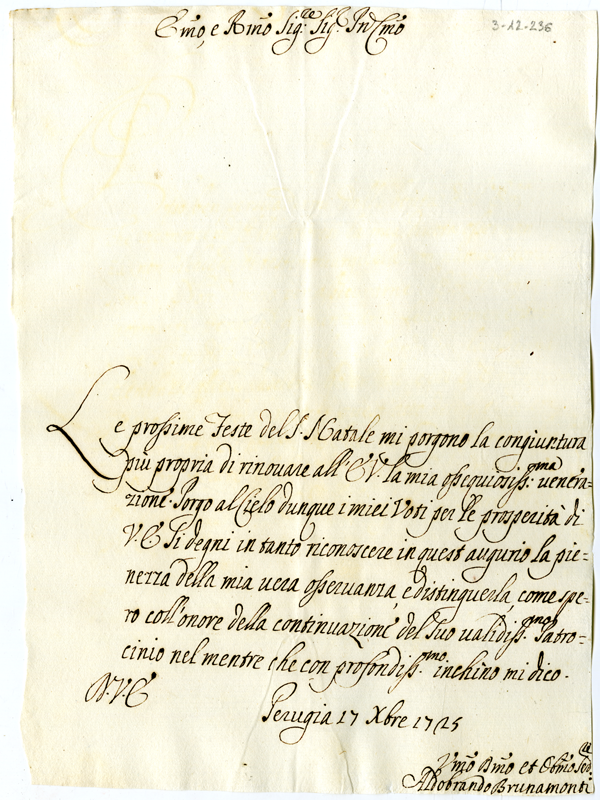 Emo, e Rmo Sigre Sigr. Pn Cmo
3-12-236
Le prossime Feste del S. Natale mi porgono la congiuntura
più propria di rinovare all'E V. la mia ossequiosiss.ma venera=
zione. Porgo al Cielo dunque i miei Voti per le prosperità di
V. E Si degni in tanto riconoscere in quest' augurio la pie=
nezza della mia vera osservanza, e distinguerla, come spe=
ro coll'onore della continvazione del Suo validiss.mo Patro=
cinio nel mentre che con profondiss.mo inchino mi dico.
D. V. E
Perugia 17 Xbre 1725
Vmo Dmo et Obmo Sre
Aldobrando Brunamonti